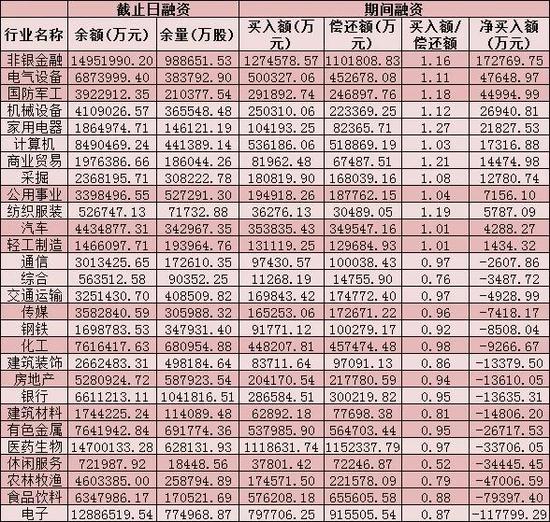 行业名称 截止日融资 期间融资
余额(万元) 余量(万股) 买入额(万元) 偿还额(万元) 买入额/偿还额 净买入额(万元)
非银金融 14951990.20 988651.53 1274578.57 1101808.83 1.16 172769.75
电气设备 6873999.40 383792.90 500327.06 452678.08 1.11 47648.97
国防军工 3922912.35 210377.54 291892.74 246897.76 1.18 44994.99
机械设备 4109026.57 365548.48 250310.06 223369.25 1.12 26940.81
家用电器 1864974.71 146121.19 104193.25 82365.71 1.27 21827.53
计算机 8490469.24 441389.14 536186.06 518869.19 1.03 17316.88
商业贸易 1976386.66 186044.26 81962.48 67487.51 1.21 14474.98
采掘 2368195.71 308222.78 180819.90 168039.16 1.08 12780.74
公用事业 3398496.55 527291.30 194918.26 187762.15 1.04 7156.10
纺织服装 526747.13 71732.88 36276.13 30489.05 1.19 5787.09
汽车 4434877.31 342967.35 353835.43 349547.16 1.01 4288.27
轻工制造 1466097.71 193964.76 131119.25 129684.93 1.01 1434.32
通信 3013425.65 172610.35 97430.57 100038.43 0.97 -2607.86
综合 563512.58 90352.25 11268.19 14755.90 0.76 -3487.72
交通运输 3251430.70 408509.82 169843.42 174772.40 0.97 -4928.99
传媒 3582840.59 305988.32 165253.06 172671.22 0.96 -7418.17
钢铁 1698783.53 347931.40 91771.12 100279.17 0.92 -8508.04
化工 7616417.63 680954.88 448207.81 457474.48 0.98 -9266.67
建筑装饰 2662483.31 498184.64 83711.64 97091.13 0.86 -13379.50
房地产 5280924.72 587923.54 204170.54 217780.59 0.94 -13610.05
银行 6611213.11 1041816.51 286584.51 300219.82 0.95 -13635.31
建筑材料 1744225.24 114089.48 62892.18 77698.38 0.81 -14806.20
有色金属 7641942.84 691774.36 537985.90 564703.44 0.95 -26717.53
医药生物 14700133.28 628131.93 1118631.74 1152337.79 0.97 -33706.05
休闲服务 721987.92 18448.56 37801.42 72246.87 0.52 -34445.45
农林牧渔 4603385.00 258794.89 174571.50 221578.09 0.79 -47006.59
食品饮料 6347986.17 170521.69 576208.18 655605.58 0.88 -79397.40
电子 12886519.54 774968.87 797706.25 915505.54 0.87 -117799.29